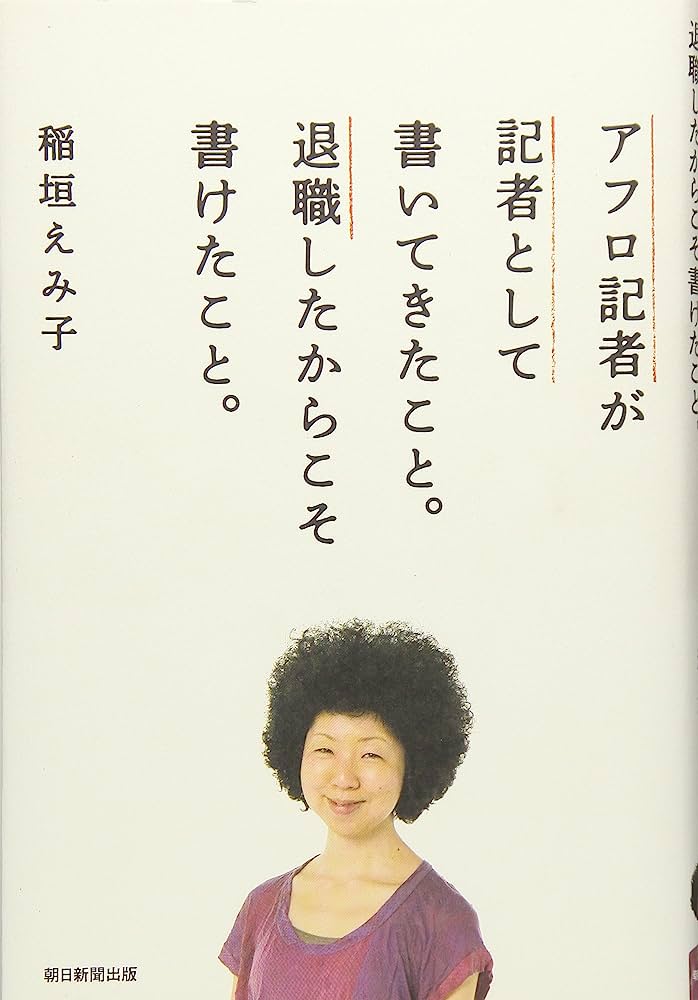 アフロ記者が
記者として
書いてきたこと。
退職したからこそ
書けたこと。
稲垣えみ子
朝日新聞出版
退職したからこそ書けたこと。